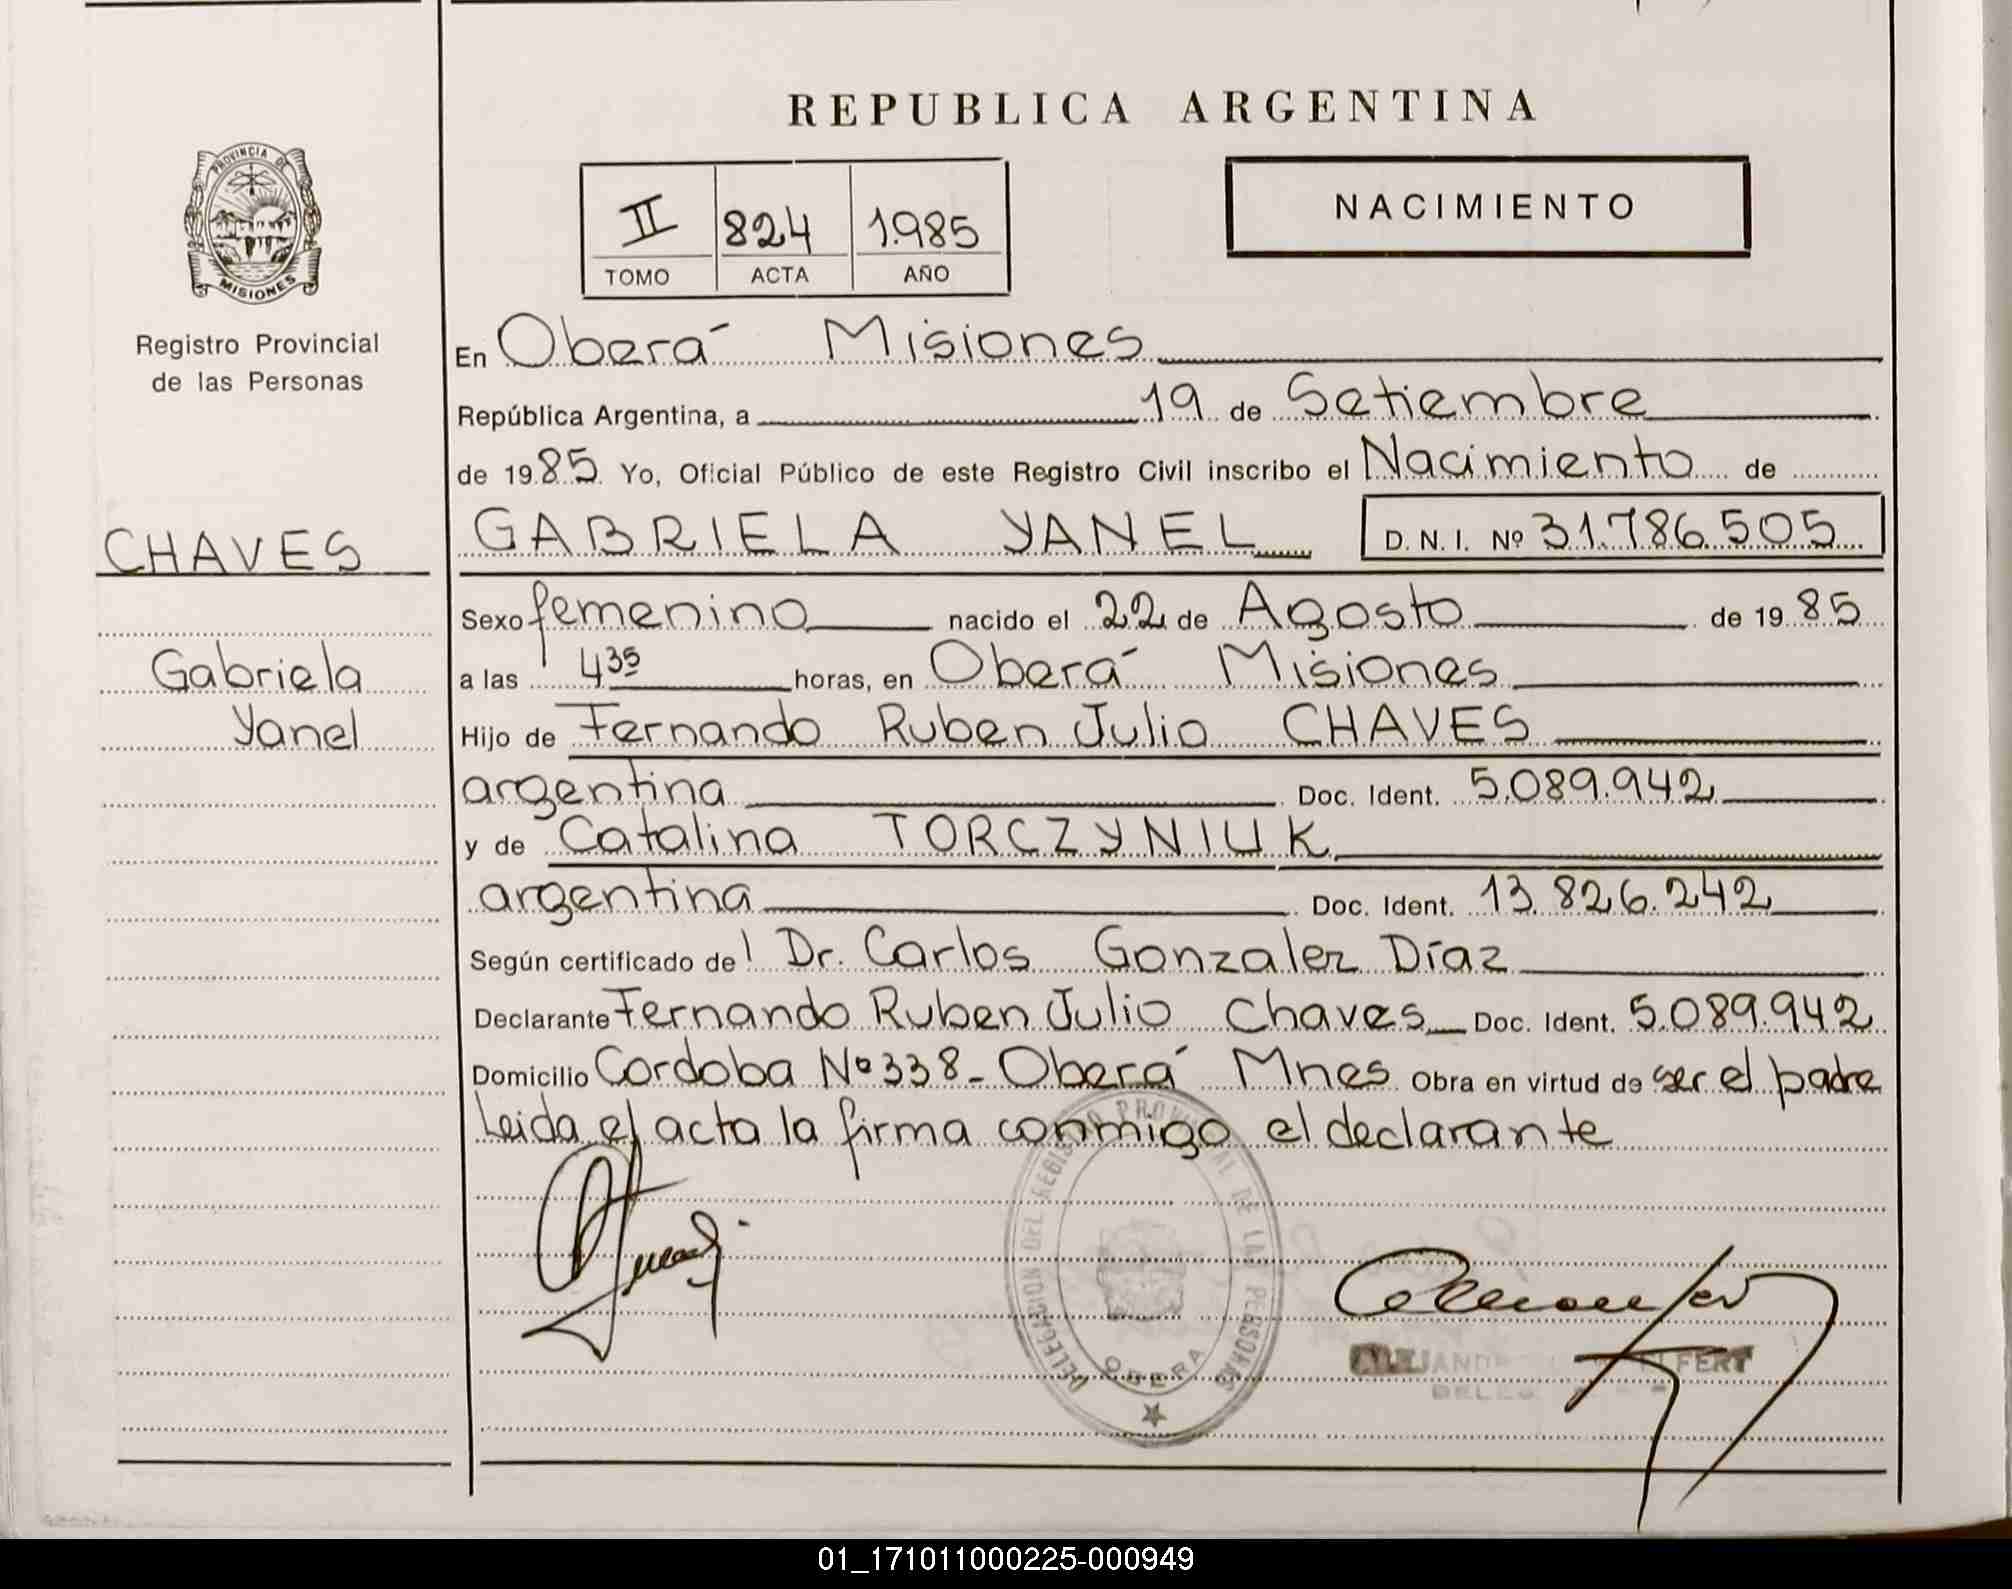 REPUBLICA ARGENTINA
PROVINCIA DE MISIONES
II 824 1.985
TOMO ACTA AÑO
NACIMIENTO
Registro Provincial
de las Personas
En Oberá Misiones
República Argentina, a 19 de Setiembre
de 1985 Yo, Oficial Público de este Registro Civil inscribo el Nacimiento de
CHAVES
GABRIELA YANEL D. N. I. Nº 31.786.505
Sexo femenino nacido el 22 de Agosto de 1985
Gabriela
Yanel
a las 4 35 horas, en Oberá Misiones
Hijo de Fernando Ruben Julio CHAVES
argentina Doc. Ident. 5.089.942
y de Catalina TORCZYNIUK
argentina Doc. Ident. 13.826.242
Según certificado del Dr. Carlos Gonzalez Díaz
Declarante Fernando Ruben Julio Chaves Doc. Ident. 5.089.942
Domicilio Cordoba Nº 338 - Oberá Mnes Obra en virtud de ser el padre
Leida el acta la firma conmigo el declarante
DELEGACION DEL REGISTRO PROVINCIAL DE LAS PERSONAS
OBERA
01_171011000225-000949